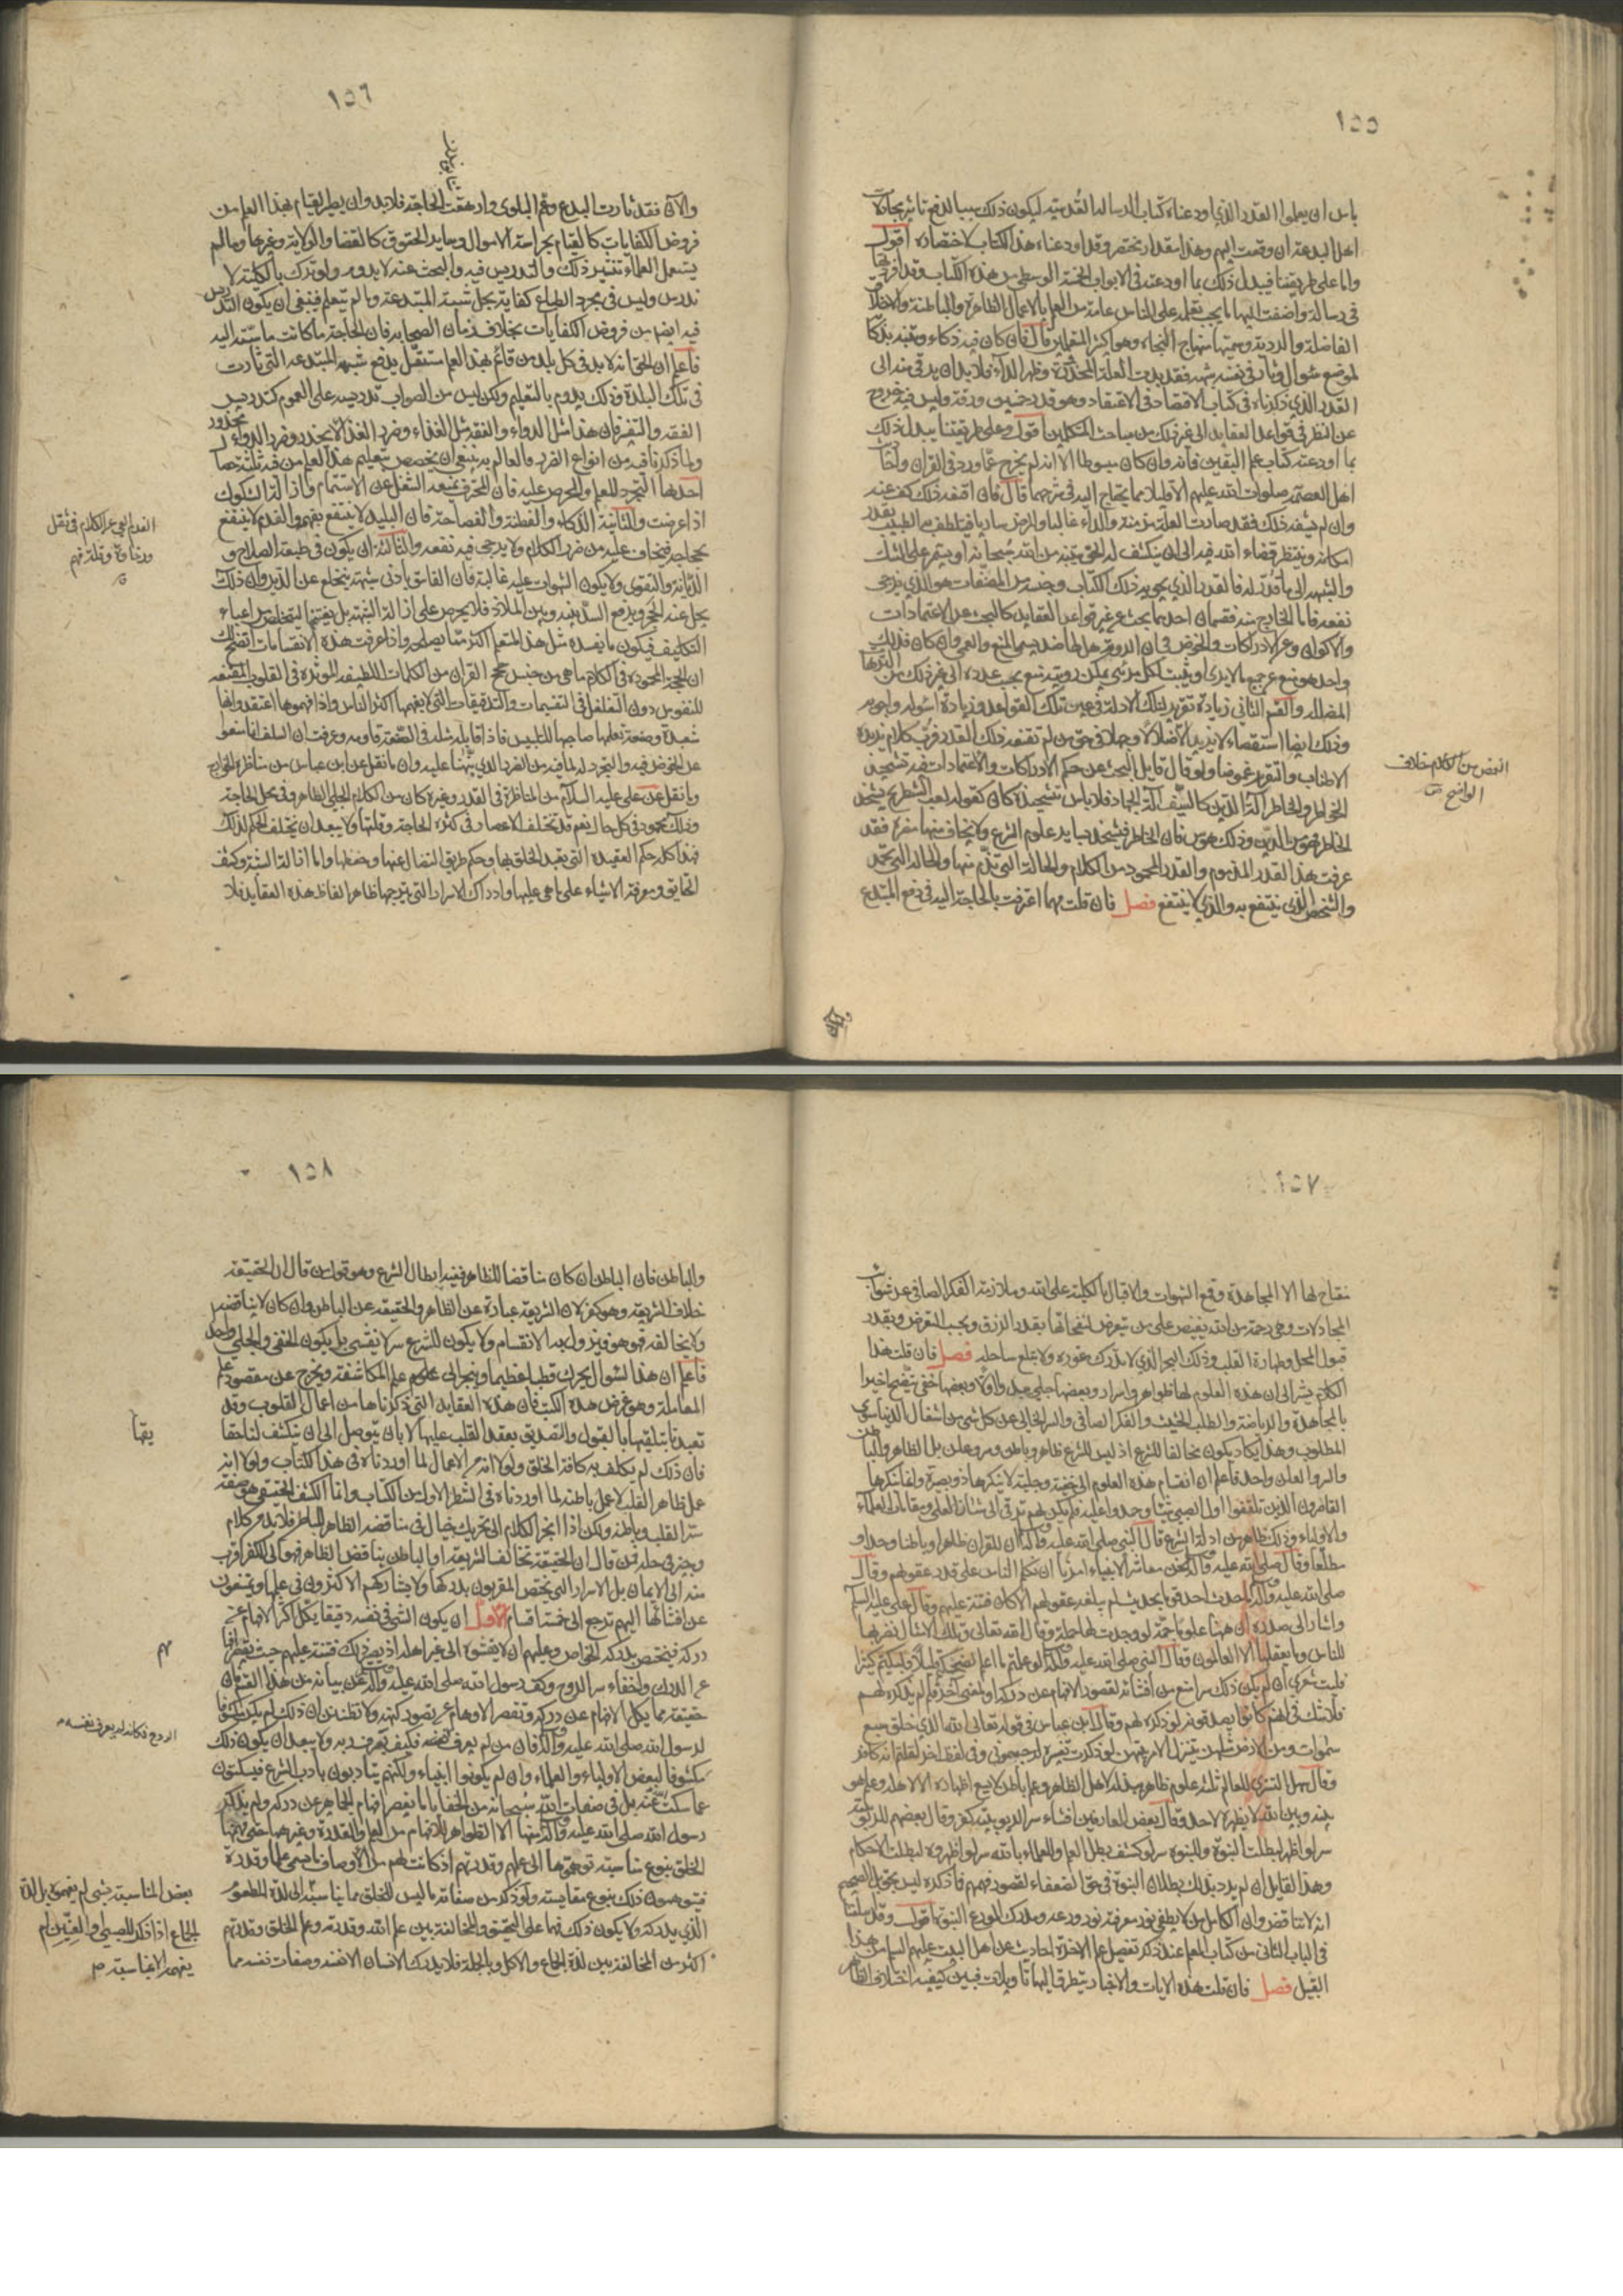 ١٥٥
باس ان يعلموا القدر الذي اودعناه كتاب الرسالة القدسية ليكون ذلك سببا لدفع تاثير مجادلات
اهل البدعة ان وقعت اليهم وهذا مقدار مختصر وقد اودعناه هذا الكتاب لاختصاره اقول
واما على طريقتنا فيبدل ذلك بما اودعته في الابواب الخمسة الوسطى من هذا الكتاب وقد افردتها
في رسالة واضفت اليها ما يجب تعلمه على الناس عامة من العلم بالاعمال الظاهرة والباطنة والاخلاق
الفاضلة والردية وسميتها منهاج النجاة وهو اكثر المتعلمين قال فان كان فيه ذكاء وتنبه بذكائه
لموضع سؤال وثار في نفسه شبهة فقد بدت العلة المحذورة وظهر الداء فلا بد ان يرقى منه الى
القدر الذي ذكرناه في كتاب الاقتصاد في الاقتصاد وهو قدر خمسين ورقة وليس فيه خروج
عن النظر في قواعد العقايد الى غير ذلك من مباحث المتكلمين اقول وعلى طريقتنا يبدل ذلك
بما اودعته كتاب علم اليقين فانه وان كان مبسوطا الا انه لم يخرج عما ورد في القران و
اهل العصمة صلوات الله عليهم الا قليلا مما يحتاج اليه في شرحهما قال فان اقنعه ذلك كف عنه
وان لم يقنعه ذلك فقد صارت العلة مزمنة والداء غالبا والمرض ساريا فيتلطف به الطبيب بقدر
امكانه وينتظر قضاء الله فيه الى ان ينكشف له الحق بتنبيه من الله سبحانه او يستمر على الشك
والشبهة الى ما قدر له فالقدر الذي يحويه ذلك الكتاب وجنسه من المصنفات هو الذي يرجى
نفعه فاما الخارج منه فقسمان احدهما بحث عن غير قواعد العقايد كالبحث عن الاعتمادات
والاكوان وعن الادراكات والخوض في ان الروية هل لها ضد يسمى المنع والعمى وان كان فذلك
واحد هو منع عن جميع ما لا يرى او يثبت لكل مرئي يمكن رويته منع بحسب عدده الى غير ذلك من الترهات
المضلة والقسم الثاني زيادة تقرير لتلك الادلة في غير تلك القواعد وزيادة اسولة واجوبة
وذلك ايضا استقصاء لا يزيد الا ضلالا وجهلا في حق من لم تقنعه ذلك القدر فرب كلام يزيده
الاطناب والتقرير غموضا ولو قال قايل البحث عن حكم الادراكات والاعتمادات فيه تشحيذ
الخواطر والخاطر الة الدين كالسيف الة الجهاد فلا باس بتشحيذه كان كقوله لعب الشطرنج يشحذ
الخاطر فهو من الدين وذلك هوس فان الخاطر فيتشحذ بساير علوم الشرع ولا يخاف منها مضرة فقد
عرفت هذا القدر المذموم والقدر المحمود من الكلام والحالة التي تذم منها والحالة التي تحمد
والشخص الذي ينتفع به والذي لا ينتفع فصل فان قلت مهما اعترفت بالحاجة اليه في دفع المبتدع
الغمض من الكلام خلاف
الواضح
١٥٦
والآن فقد ثارت البدع وعم البلوى وارهقت الحاجة فلا بد وان يصير القيام بهذا العلم من
فروض الكفايات كالقيام بحراسة الاموال وساير الحقوق كالقضا والولاية وغيرهما وما لم
يشتغل العلماء بنشر ذلك والتدريس فيه والبحث عنه لا يدوم ولو ترك بالكلية لا
ندرس وليس في مجرد الطباع كفاية بحل شبه المبتدعة وما لم يتعلم فينبغي ان يكون التدريس
فيه ايضا من فروض الكفايات بخلاف زمان الصحابة فان الحاجة ما كانت ماسة اليه
فاعلم ان الحق انه لا بد في كل بلد من قائم بهذا العلم مستقل بدفع شبهة المبتدعة التي ثارت
في تلك البلدة وذلك يدوم بالتعليم ولكن ليس من الصواب تدريسه على العموم كتدريس
الفقه والتفسير فان هذا مثل الدواء والفقه مثل الغذاء وضرر الغذاء لا يحذر وضرر الدواء محذور
ولما ذكرنا فيه من انواع الضرر فالعالم به ينبغي ان يخصص بتعليم هذا العلم من فيه ثلثة خصال
احداها التجرد للعلم والحرص عليه فان المحترف يمنعه الشغل عن الاستتمام وازالة الشكوك
اذا عرضت والثانية الذكاء والفطنة والفصاحة فان البليد لا ينتفع بفهمه والفدم لا ينتفع
بحجاجه فيخاف عليه من ضرر الكلام ولا يرجى فيه نفعه والثالثة ان يكون في طبعه الصلاح و
الديانة والتقوى ولا يكون الشهوات عليه غالبة فان الفاسق بادنى شبهة ينخلع عن الدين وان ذلك
يحل عنه الحجر ويرفع السد بينه وبين الملاذ فلا يحرص على ازالة الشبهة بل يغتنمها ليتخلص من اعباء
التكليف فيكون ما يفسده مثل هذا المتعلم اكثر مما يصلحه واذا عرفت هذه الانقسامات اتضح لك
ان الحجة المحمودة في الكلام ما هي من جنس حجج القران من الكلمات اللطيفة الموثرة في القلوب المقنعة
للنفوس دون التغلغل في التقسيمات والتدقيقات التي لا يفهمها اكثر الناس واذا فهموها اعتقدوا انها
شعبدة وصنعة تعلمها صاحبها للتلبيس فاذا قابله مثله في الصنعة قاومه وعرفت ان السلف انما منعوا
عن الخوض فيه والتجرد له لما فيه من الضرر الذي نبهنا عليه وان ما نقل عن ابن عباس من مناظرة الخوارج
وما نقل عن علي عليه السلام من المناظرة في القدر وغيره كان من الكلام الجلي الظاهر وفي محل الحاجة
وذلك محمود في كل حال نعم قد تختلف الاعصار في كثرة الحاجة وقلتها ولا يبعد ان يختلف الحكم لذلك
فهذا كله حكم العقيدة التي تعبد الخلق بها وحكم طريق النضال عنها وحفظها واما ازالة الشبهة وكشف
الحقايق ومعرفة الاشياء على ما هي عليها وادراك الاسرار التي يترجمها ظاهر الفاظ هذه العقايد فلا
الفدم العي عن الكلام في ثقل
ورخاوة وقلة فهم
ق
١٥٧
مفتاح لها الا المجاهدة وقمع الشهوات والاقبال بالكلية على الله وملازمة الفكر الصافي عن شوائب
المجادلات وهي رحمة من الله يفيض على من يتعرض لنفحاتها بقدر الرزق وبحسب التعرض وبقدر
قبول المحل وطهارة القلب وذلك البحر الذي لا يدرك غوره ولا يبلغ ساحله فصل فان قلت هذا
الكلام يشير الى ان هذه العلوم لها ظواهر واسرار وبعضها جلي يبدو اولا وبعضها خفي يتضح اخيرا
بالمجاهدة والرياضة والطلب الحثيث والفكر الصافي والسر الخالي عن كل شي من اشغال الدنيا سوى
المطلوب وهذا يكاد يكون مخالفا للشرع اذ ليس للشرع ظاهر وباطن وسر وعلن بل الظاهر والباطن
والسر والعلن واحد فاعلم ان انقسام هذه العلوم الى خفية وجلية لا ينكرها ذو بصيرة وانما ينكرها
القاصرون الذين تلقفوا اول الصبى شيئا وجمدوا عليه فلم يكن لهم ترقي الى شاو العلى ومقامات العلماء
والاولياء وذلك ظاهر من ادلة الشرع قال النبي صلى الله عليه وآله ان للقران ظاهرا وباطنا وحدا و
مطلعا وقال صلى الله عليه وآله نحن معاشر الانبياء امرنا ان نكلم الناس على قدر عقولهم وقال
صلى الله عليه وآله ما حدث احد قوما بحديث لم يبلغه عقولهم الا كان فتنة عليهم وقال علي عليه السلام
واشار الى صدره ان ههنا علوما جمة لو وجدت لها حملة وقال الله تعالى وتلك الامثال نضربها
للناس وما يعقلها الا العالمون وقال النبي صلى الله عليه وآله لو علمتم ما اعلم لضحكتم قليلا ولبكيتم كثيرا
فليت شعري ان لم يكن ذلك سرا منع من افشائه لقصور الافهام عن دركه او لمعنى اخر فلم لم يذكره لهم
فلا شك في انهم كانوا يصدقونه لو ذكره لهم وقال ابن عباس في قوله تعالى الله الذي خلق سبع
سموات ومن الارض مثلهن يتنزل الامر بينهن لو ذكرت تفسيره لرجمتموني وفي لفظ اخر لقلتم انه كافر
وقال سهل التستري للعالم ثلثة علوم ظاهر يبذله لاهل الظاهر وعلم باطن لا يسع اظهاره الا لاهله وعلم هو
بينه وبين الله لا يظهره لاحد وقال بعض العارفين افشاء سر الربوبية كفر وقال بعضهم للربوبية
سر لو اظهر لبطلت النبوة وللنبوة سر لو كشف لبطل العلم وللعلماء بالله سر لو اظهروه لبطلت الاحكام
وهذا القايل ان لم يرد بذلك بطلان النبوة في حق الضعفاء لقصور فهمهم فما ذكره ليس بحق بل الصحيح
انه لا تناقض وان الكامل من لا يطفئ نور معرفته نور ورعه ومدرك الورع النبوة اقول وقد اسلفنا
في الباب الثاني من كتاب العلم عند ذكر تفصيل علم الاخرة احاديث عن اهل البيت عليهم السلام من هذا
القبيل فصل فان قلت هذه الايات والاخبار يتطرق اليها تاويلات فبين كيفية اختلاف الظاهر
١٥٨
والباطن فان الباطن ان كان مناقضا للظاهر ففيه ابطال الشرع وهو قول من قال ان الحقيقة
خلاف الشريعة وهو كفر لان الشريعة عبارة عن الظاهر والحقيقة عن الباطن وان كان لا يناقضه
ولا يخالفه فهو هو فيزول به الانقسام ولا يكون للشرع سر لا يفشى بل يكون الخفي والجلي واحدا
فاعلم ان هذا السؤال يحرك خطبا عظيما وينجر الى علوم علم المكاشفة ويخرج عن مقصود علم
المعاملة وهو غرض هذه الكتب فان هذه العقايد التي ذكرناها من اعمال القلوب وقد
تعبدنا بتلقيها بالقبول والتصديق بعقد القلب عليها لا بان يتوصل الى ان ينكشف لنا حقا
يقها
فان ذلك لم يكلف به كافة الخلق ولولا انه من الاعمال لما اوردناه في هذا الكتاب ولولا انه
عمل ظاهر القلب لا عمل باطنه لما اوردناه في الشطر الاول من الكتاب وانما الكشف الحقيقي هو صفة
سر القلب وباطنه ولكن اذا انجر الكلام الى تحريك خيال في مناقضة الظاهر للباطن فلا بد من كلام
وجيز في حله فمن قال ان الحقيقة تخالف الشريعة او الباطن يناقض الظاهر فهو الى الكفر اقرب
منه الى الايمان بل الاسرار التي يختص المقربون بدركها ولا يشاركهم الاكثرون في علمها ويمنعون
عن افشائها اليهم ترجع الى خمسة اقسام الاول ان يكون الشي في نفسه دقيقا يكل اكثر الافهام عن
دركه فيختص بدركه الخواص وعليهم ان لا يفشوه الى غير اهله اذ يصير ذلك فتنة عليهم حيث يقصر افها
مهم
عن الدرك واخفاء سر الروح وكف رسول الله صلى الله عليه وآله عن بيانه من هذا القسم فان
حقيقته مما يكل الافهام عن دركه وتقصر الاوهام عن تصور كنهه ولا تظنن ان ذلك لم يكن مكشوفا
لرسول الله صلى الله عليه وآله فان من لم يعرف نفسه فكيف يعرف ربه ولا يبعد ان يكون ذلك
الروح فكانه لم يعرف نفسه
مكشوفا لبعض الاولياء والعلماء وان لم يكونوا انبياء ولكنهم يتادبون بادب الشرع فيسكتون
عما سكت عنه بل في صفات الله سبحانه من الخفايا ما يقصر افهام الجماهير عن دركه ولم يذكر
رسول الله صلى الله عليه وآله منها الا الظواهر للافهام من العلم والقدرة وغيرهما حتى فهمها
الخلق بنوع مناسبة توهموها الى علمهم وقدرتهم اذ كانت لهم من الاوصاف ما يسمى علما وقدرة
فيتوهمون ذلك بنوع مقايسة ولو ذكر من صفاته ما ليس للخلق مما يناسبه الى لذة المطعوم
الذي يدركه ولا يكون ذلك فهما على التحقيق والمخالفة بين علم الله وقدرته وعلم الخلق وقدرتهم
اكثر من المخالفة بين لذة الجماع والاكل وبالجملة فلا يدرك الانسان الا نفسه وصفات نفسه مما
بعض المناسبة بشي لم يفهموه بل لذة
الجماع اذا ذكر للصبي والعنين لم
يفهمه الا بمناسبة